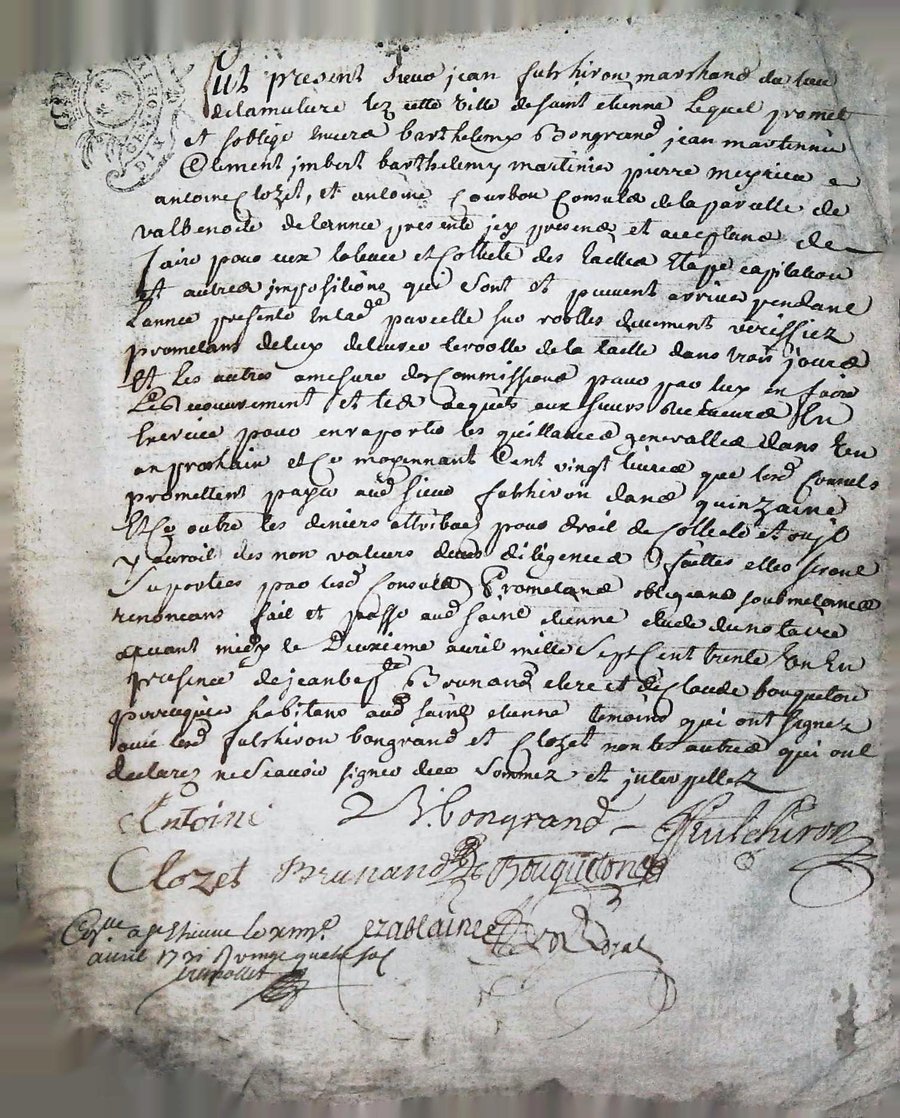 GEN DE LION
DIX
Fut present sieur jean fulchiron marchand du lieu
delamulere lez cette ville desaint etienne Lequel promet
et soblige envers barthelemy Bongrand jean martinnier
Clement jmbert barthelemy martinier pierre meyrieu
antoine Clozet, et antoine Courbon Consuls de la parcelle de
valbenoite delannee presente jcy presens et acceptans de
faire pour eux la levee et Collecte des tailles Etappe capitation
Et autres impositions qui sont et peuvent arriver pendant
Lannee presente En lad parcelle sur roolles deuement veriffiez
prometans deleux delivrer le roolle de la taille dans trois jours
Et les autres amesure des Commissions pour par luy en faire
Le recouvrement et les aquits aux sieurs Receveurs En
Exercice pour en raporter les quittances generalles dans
an prochain et Ce moyennant Cent vingt livres que lesd Consuls
promettent payer aud sieur fulchiron dans quinzaine
Et Ce outre les deniers attribues pour droit de Collecte et ou jl
y auroit des non valeurs dues diligences faittes elles seront
Suportees par lesd Consuls Prometans obligeans soubmetans
renoncans fait et passe aud saint etienne etude du notaire
avant midy le Deuxieme avril mille Sept Cent trente Un En
presence de jean bapte Brunand clerc et de Claude bouqueton
perruquier habitans aud saint etienne temoins qui ont signez
avec lesd fulchiron bongrand et Clozet non les autres qui ont
declarez ne Scavoir signer de ce Sommez et interpellez
Antoine B. bongrand Fulchiron
Clozet Brunand Bouqueton
Collle a st etienne le
avril 1731 R vingt quatre sol